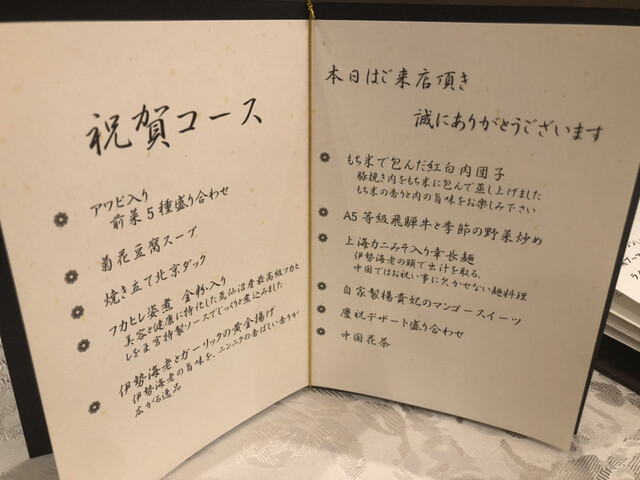 祝賀コース
アワビ入り
前菜5種盛り合わせ
菊花豆腐スープ
焼き立て北京ダック
フカヒレ姿煮 金粉入り
美容と健康に特化した気仙沼産最高級フカヒ
レを正宮特製ソースでじっくりと煮込みました
伊勢海老とガーリックの黄金揚げ
伊勢海老の旨味を、ニンニクの香ばしい香りが
広がる逸品
本日はご来店頂き
誠にありがとうございます
もち米で包んだ紅白肉団子
豚挽き肉をもち米に包んで蒸し上げました
もち米の香りと肉の旨味をお楽しみ下さい
A5等級飛騨牛と季節の野菜炒め
上海カニみそ入り幸長麺
伊勢海老の頭で出汁を取る、
中国ではお祝い事に欠かせない麺料理
自家製楊貴妃のマンゴースイーツ
慶祝デザート盛り合わせ
中国花茶